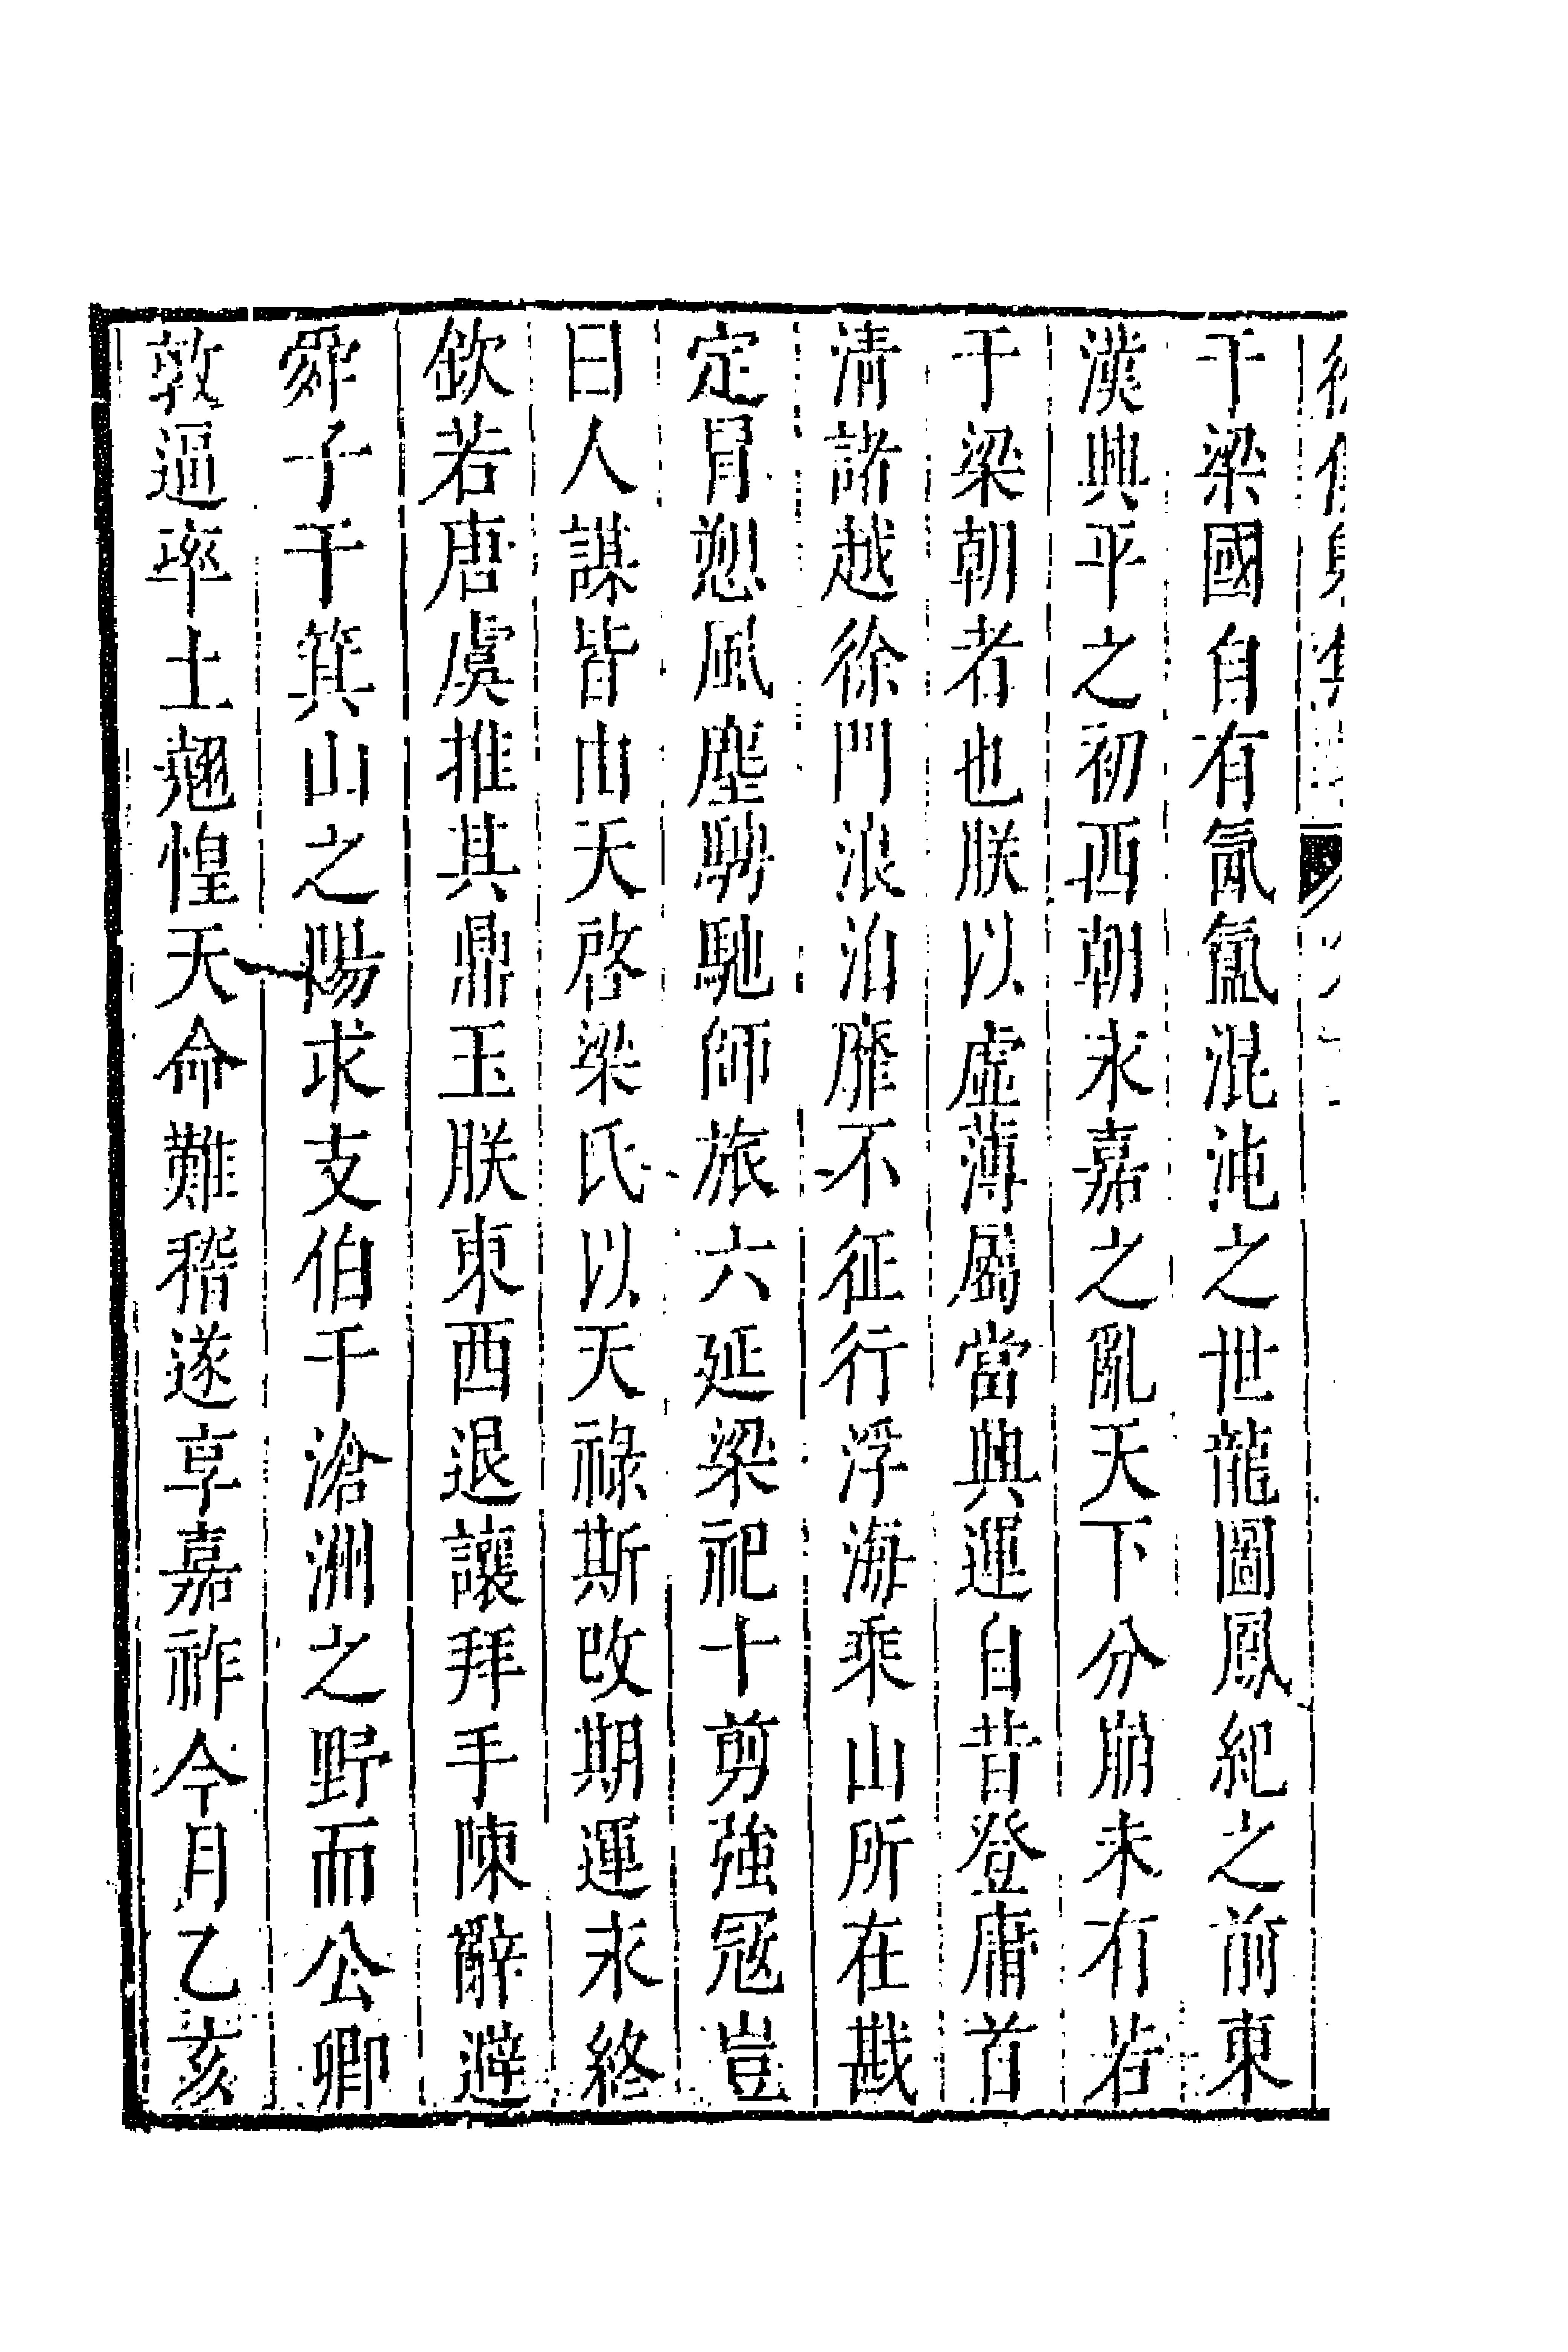 干梁國自有氤氳混沌之世龍圖鳳紀之前東
漢興平之初西朝永嘉之亂天下分崩未有若
于梁朝者也朕以虛薄屬當興運自昔登庸首
清諸越徐門浪泊靡不征行浮海乘山所在戡
定冐愬風塵騁馳師旅六延梁祀十剪強冦豈
曰人謀皆由天啓梁氏以天祿斯改期運永終
欽若唐虞推其鼎玉朕東西退讓拜手陳辭避
舜子于箕山之陽求支伯于滄洲之野而公卿
敦逼率土翹惶天命難稽遂享嘉祚今月乙亥